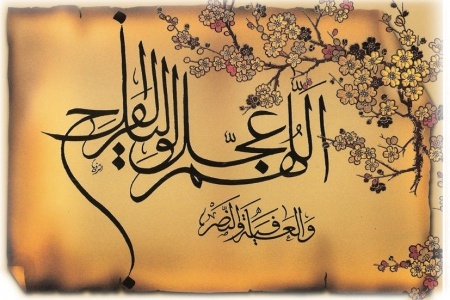 اَللّهُمَّ عَجِّل لوليك الفرج
والعافية والنصر